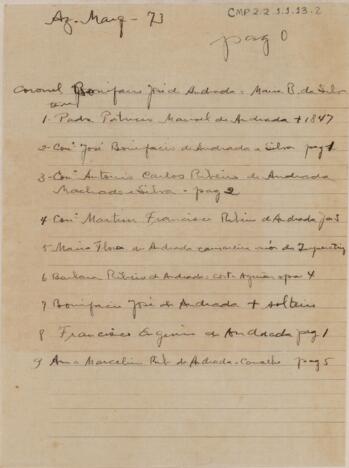 Az. Marq - 73
CMP 2.2.1.1.13-2
pag 0
Coronel Bonifacio José de Andrada = Maria B. da Silva
1- Padre Patricio Manoel de Andrada + 1847
2- Conº José Bonifacio de Andrada e Silva pag 1
3- Conº Antonio Carlos Ribeiro de Andrada
Machado e Silva - pag 2
4 Conº Martim Francisco Ribeiro de Andrada pag 3
5 Maria Flora de Andrada camareira mór da Imperatriz
6 Barbara Ribeiro de Andrada = Costa Aguiar pag 4
7 Bonifacio José de Andrada + solteiro
8 Francisco Eugenio de Andrada pag 1
9 Anna Marcelina Rib. de Andrada = Carvalho pag 5